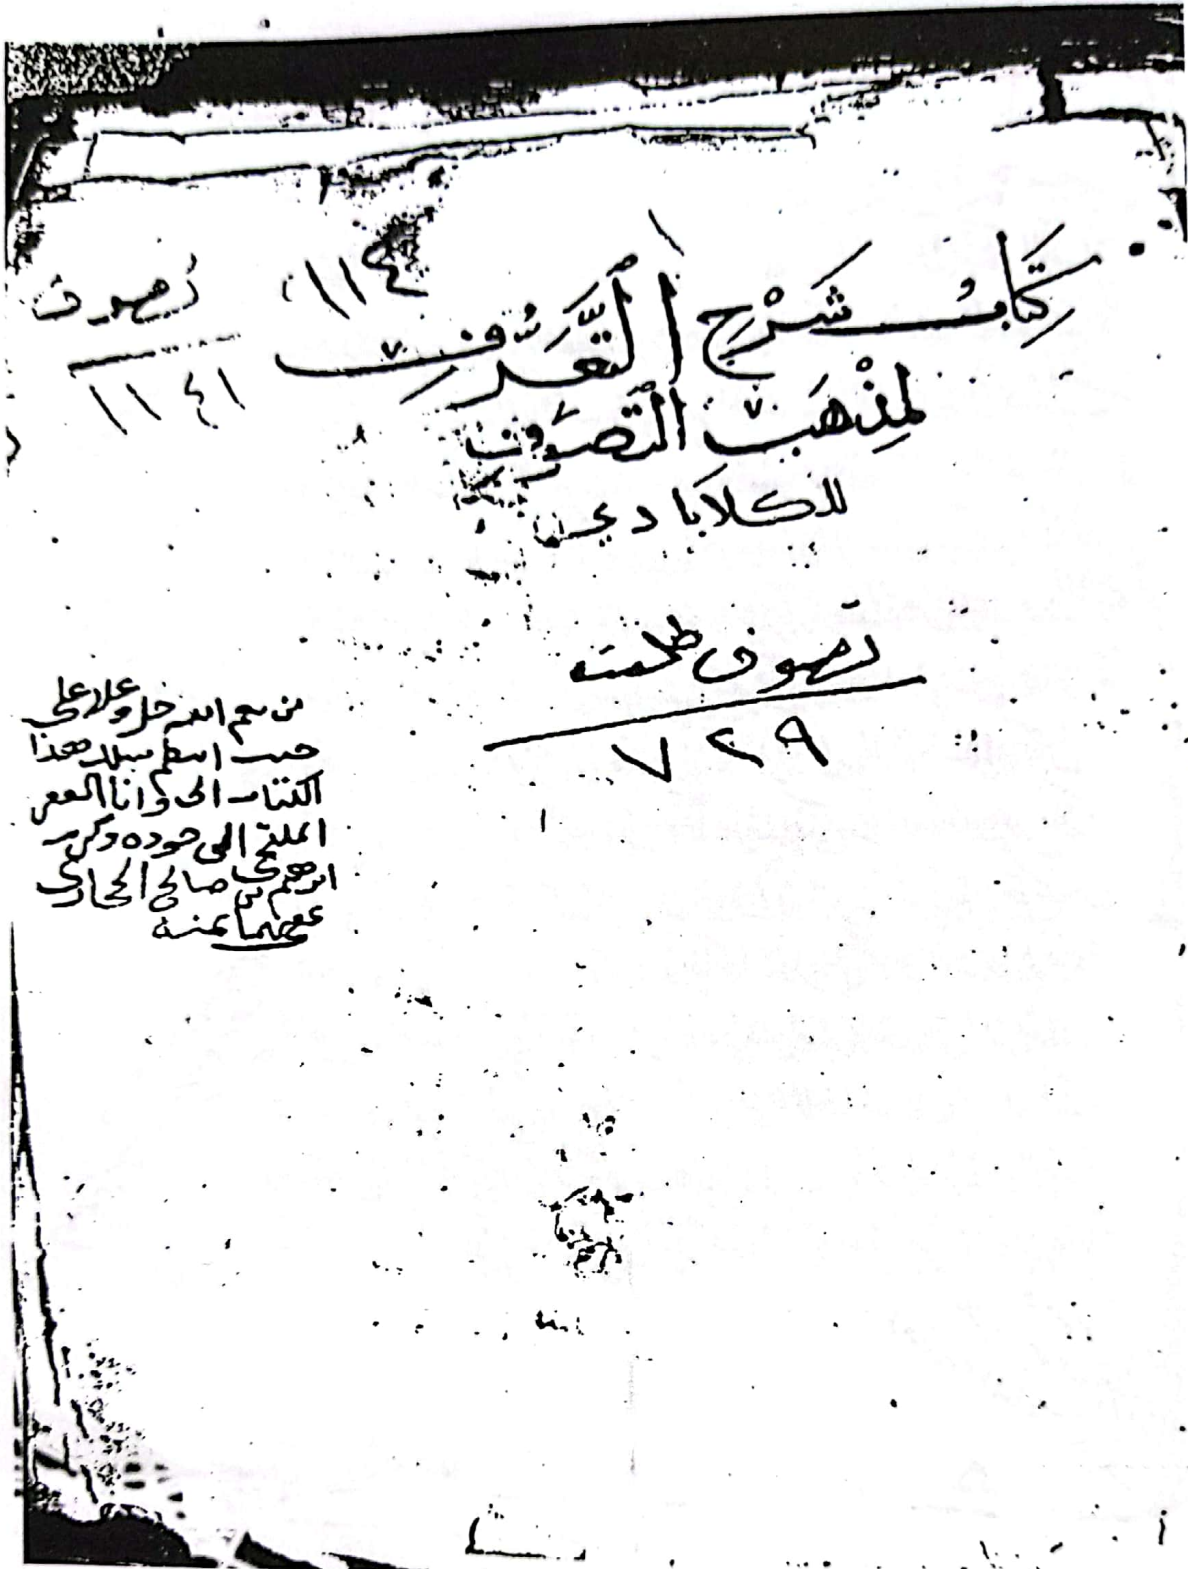 كِتَابُ شَرْحِ التَّعَرُّفِ
لِمَذْهَبِ التَّصَوُّفِ
للكلاباذي
١١٤
تصوف
١١٤١
تصوف طلعت
٧٢٩
من نعم الله جل وعلا علي
حيث انتظم سلك هذا
الكتاب الى وانا الفقير
الملتجي الى جوده وكرمه
ابرهيم بن صالح
عفي عنهما بمنه